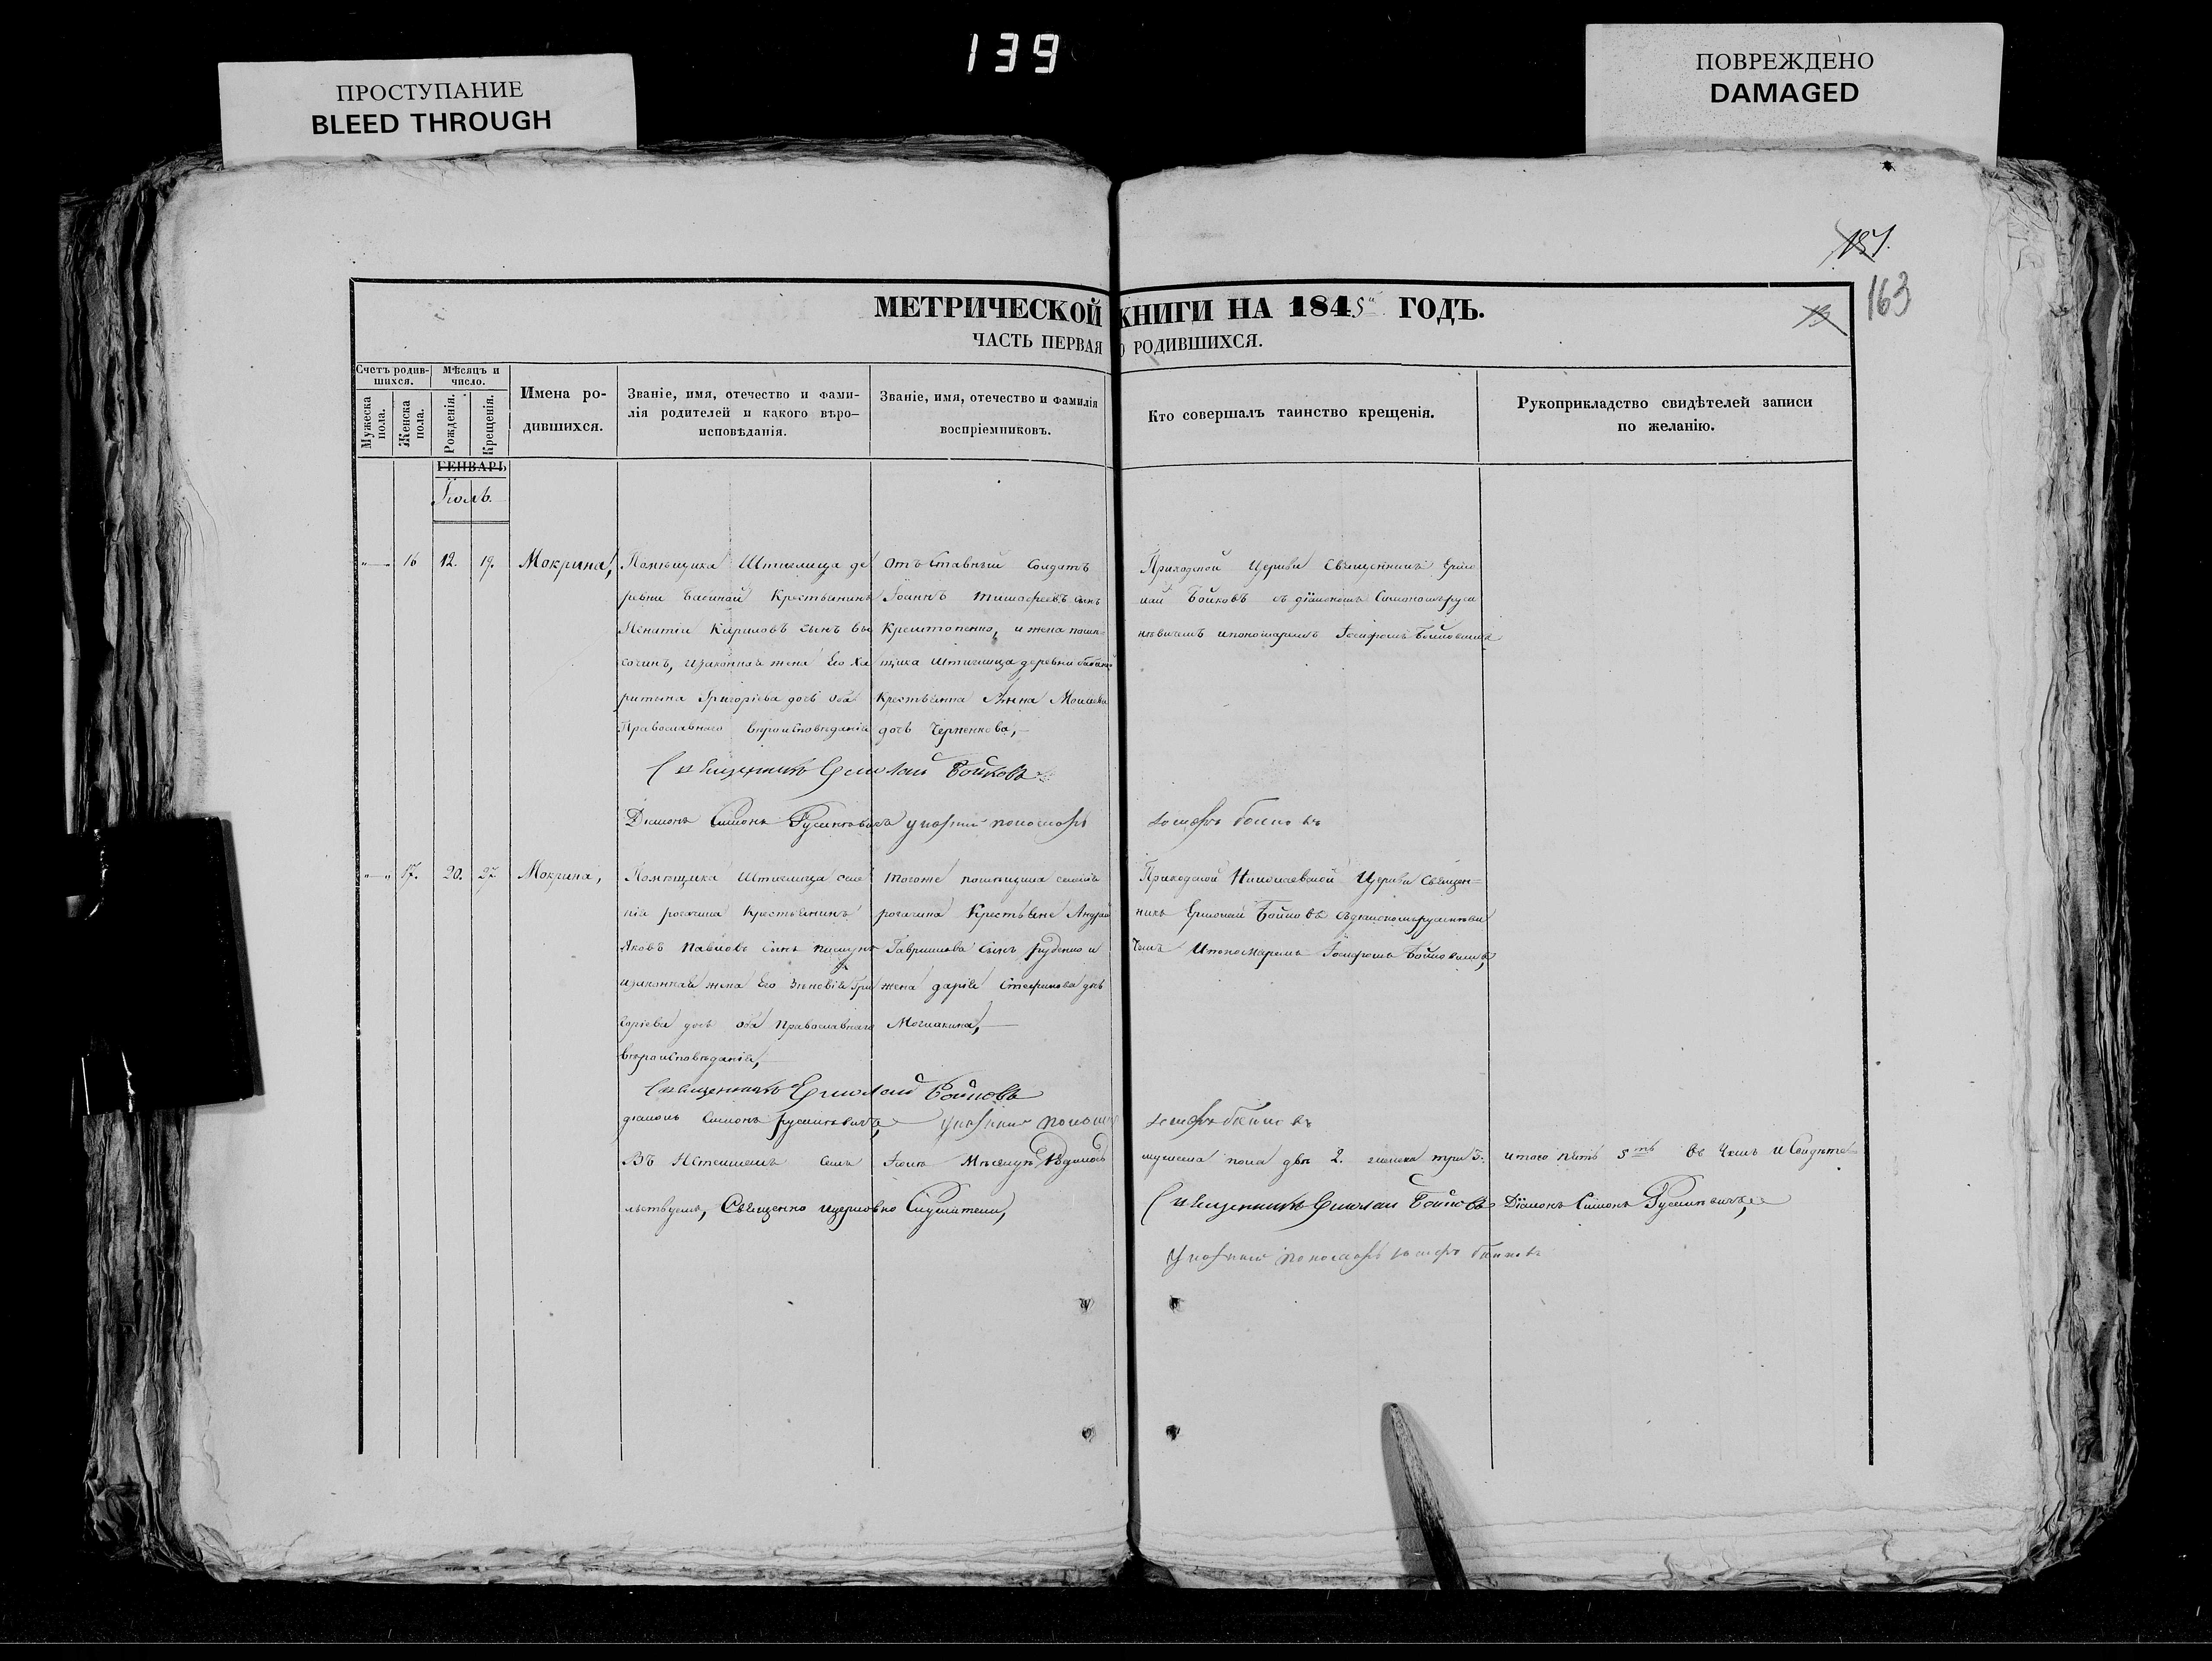 139
ПРОСТУПАНИЕ
BLEED THROUGH
ПОВРЕЖДЕНО
DAMAGED
163
МЕТРИЧЕСКОЙ КНИГИ НА 1845 ГОДЪ.
ЧАСТЬ ПЕРВАЯ О РОДИВШИХСЯ.
Счетъ родив-
шихся.
Мужеска пола.
Женска пола.
Мѣсяцъ и
число.
Рожденія.
Крещенія.
Имена ро-
дившихся.
Званіе, имя, отечество и фами-
лія родителей и какого вѣро-
исповѣданія.
Званіе, имя, отечество и фамилія
воспріемниковъ.
Кто совершалъ таинство крещенія.
Рукоприкладство свидѣтелей записи
по желанію.
ГЕНВАРЬ
Іюль.
16 12. 19. Мокрина,
Помѣщика Штиглица де
ревни Крестьянинъ
Игнатій Кириловъ сынъ
законная жена Его Ха
ритина Григоріева дочь оба
Православнаго вѣроисповѣданія
отъставный Солдатъ
Іоаннъ Тимофеевъ сынъ
и жена помѣ
щика Штиглица деревни
Крестьянка Анна Моисеева
дочь Черненкова,
Приходской Церкви Священникъ Ермо
лай Бойковъ съ діакономъ Симономъ Руси
невичемъ и пономаремъ Іосифомъ Бойковымъ
Священникъ Ермолай Бойковъ
Діаконъ Симонъ Русиневичъ указный пономарь
Іосифъ Бойковъ
17. 20. 27. Мокрина,
Помѣщика Штиглица селе
нія рогачика Крестьянинъ
Яковъ Павловъ сынъ
изаконная жена Его Зиновія Гри
горіева дочь оба православнаго
вѣроисповѣданія,
Тогоже помѣщика селенія
рогачика Крестьяне Андрей
Гавриловъ сынъ Руденко и
жена дарія Стефанова дочь
Приходской Николаевской Церкви Священ=
никъ Ермолай Бойковъ съдіакономъ русиневи
чемъ Ипономаремъ Іосифомъ Бойковымъ,
Священникъ Ермолай Бойковъ
діаконъ Симонъ русиневичъ, указный пономарь
Іосифъ Бойковъ
Въ семъ Іюлѣ Мѣсяцѣ Родилось
мужеска пола два 2. женска три 3. итого пять 5ть въ чемъ и Свидѣте=
льствуемъ, Священно ицерковно Служители,
Священникъ Ермолай Бойковъ Діаконъ Симонъ Русиневичъ,
Указный пономарь Іосифъ Бойковъ